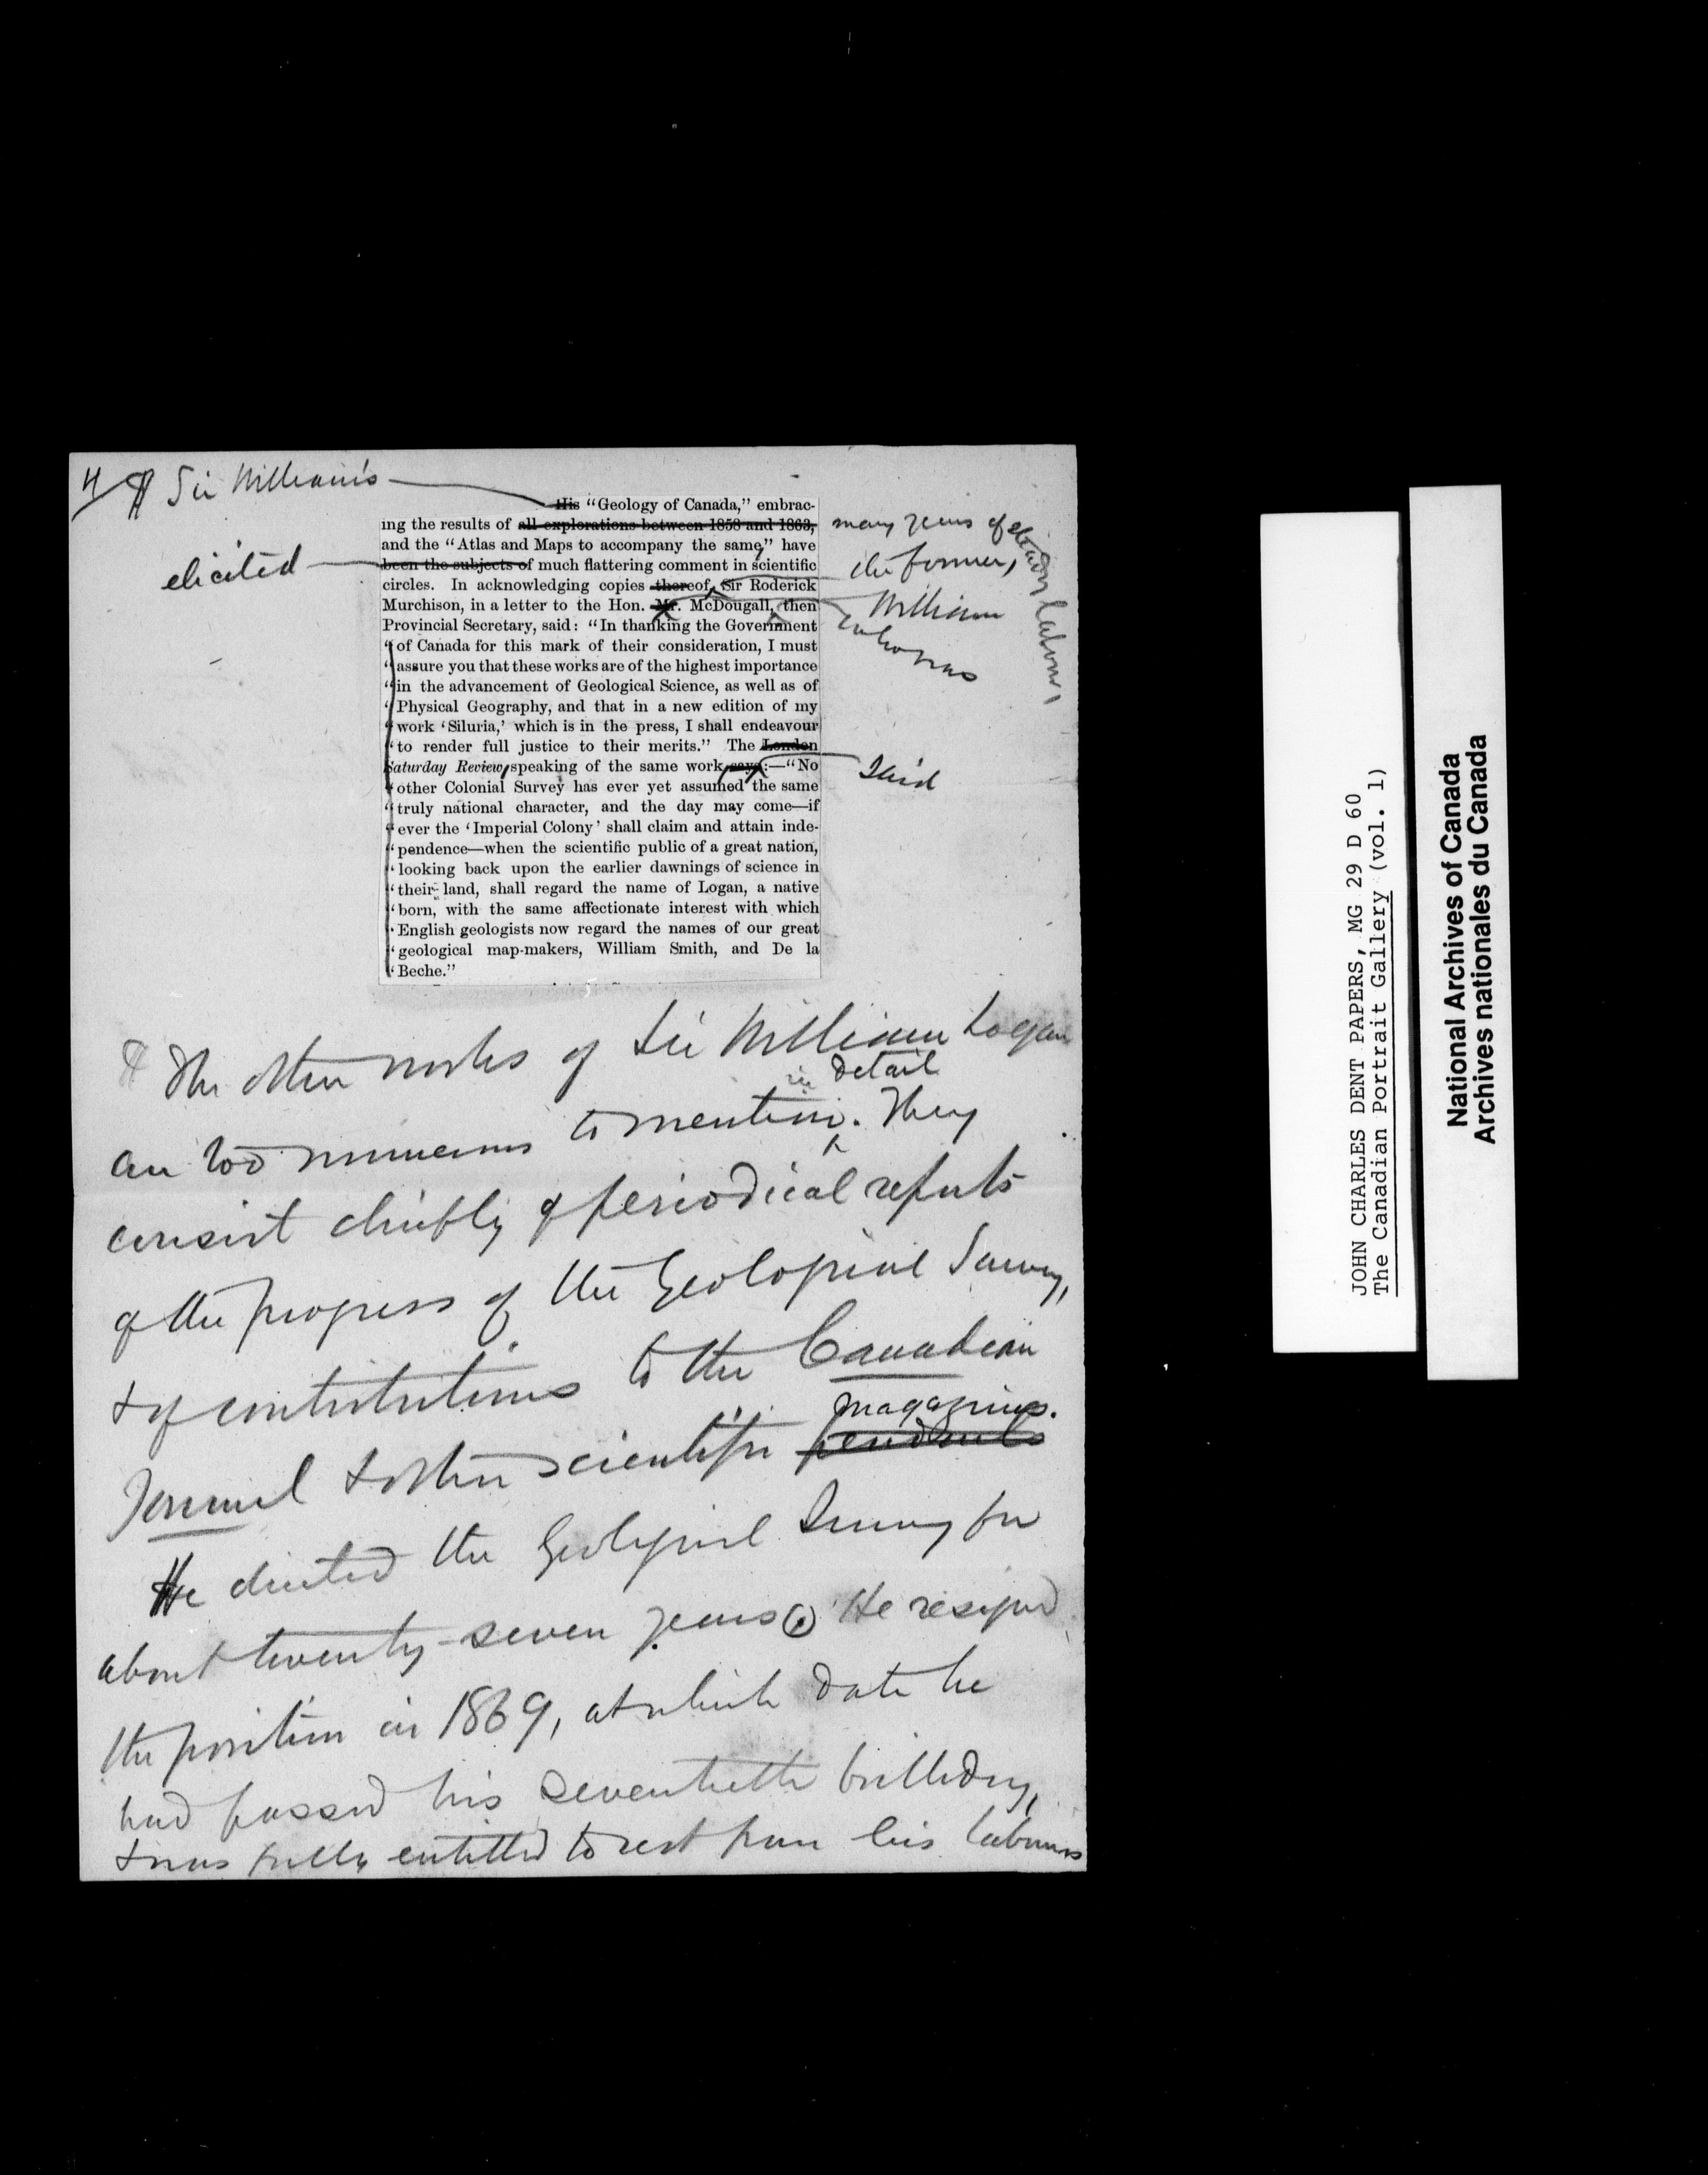 4/ ¶ Sir William's
His “Geology of Canada,” embrac-
ing the results of all explorations between 1858 and 1863, many years of steady labour,
and the “Atlas and Maps to accompany the same,” have
elicited been the subjects of much flattering comment in scientific
circles. In acknowledging copies thereof, Sir Roderick the former,
Murchison, in a letter to the Hon. Mr. McDougall, then William
who was
Provincial Secretary, said: “In thanking the Government
“of Canada for this mark of their consideration, I must
“assure you that these works are of the highest importance
“in the advancement of Geological Science, as well as of
“Physical Geography, and that in a new edition of my
“work ‘Siluria,’ which is in the press, I shall endeavour
“to render full justice to their merits.” The London
Saturday Review, speaking of the same work, says:—“No said
“other Colonial Survey has ever yet assumed the same
“truly national character, and the day may come—if
“ever the ‘Imperial Colony’ shall claim and attain inde-
“pendence—when the scientific public of a great nation,
“looking back upon the earlier dawnings of science in
“their land, shall regard the name of Logan, a native
“born, with the same affectionate interest with which
“English geologists now regard the names of our great
“geological map-makers, William Smith, and De la
“Beche.”
¶ The other works of Sir William Logan
in detail
are too numerous to mention. They
consist chiefly of periodical reports
of the progress of the Geological Survey,
& of contributions to the Canadian
magazines.
Journal & other scientific periodicals
He directed the Geological Survey for
about twenty-seven years. He resigned
the position in 1869, at which date he
had passed his seventieth birthday,
& was fully entitled to rest from his labours
JOHN CHARLES DENT PAPERS, MG 29 D 60
The Canadian Portrait Gallery (vol. 1)
National Archives of Canada
Archives nationales du Canada